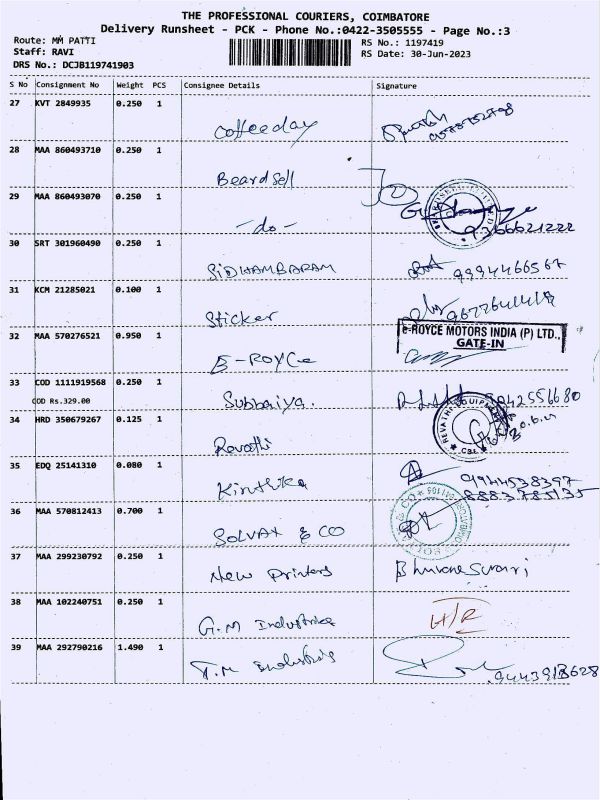 THE PROFESSIONAL COURIERS, COIMBATORE
Delivery Runsheet - PCK - Phone No.:0422-3505555 - Page No.:3
Route: MM PATTI
RS No.: 1197419
Staff: RAVI
RS Date: 30-Jun-2023
DRS No.: DCJB119741903
S No Consignment No Weight PCS Consignee Details Signature
27 KVT 2849935 0.250 1
Coffeeday
28 MAA 860493710 0.250 1
Beardsell
29 MAA 860493070 0.250 1
-do- 9366621222
30 SRT 301960490 0.250 1
SIDHAMBARAM 9994466567
31 KCM 21285021 0.100 1
Sticker
e-ROYCE MOTORS INDIA (P) LTD.,
32 MAA 570276521 0.950 1
GATE-IN
E-ROYCE
33 COD 1111919568 0.250 1
COD Rs.329.00 Subbaiya. 9042551680
34 HRD 350679267 0.125 1
REVATHI EQUIPMENT
CBE
Revathi
35 EDQ 25141310 0.080 1
Kirthika 9944538397
8883785135
36 MAA 570812413 0.700 1
SOLVAX & CO
37 MAA 299230792 0.250 1
New Printers Bhuvaneswari
38 MAA 102240751 0.250 1
G.M Industries H/R
39 MAA 292790216 1.490 1
T.M Industris